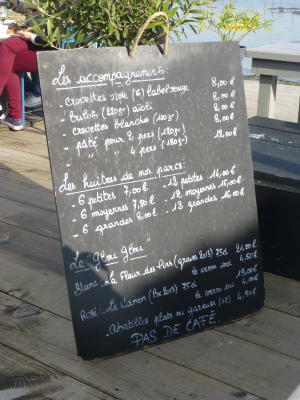 Les accompagnements:
- crevettes rose (6) label rouge 8,00€
- bulots (220gr) aïoli 8,00€
- crevettes blanches (100gr) 8,00€
- pâté pour 2 pers (120gr) 8,00€
" 4 pers (180gr) 12,00€
Les huîtres de nos parcs:
- 6 petites 7,00€ - 12 petites 14,00€
- 6 moyennes 7,50€ - 12 moyennes 15,00€
- 6 grandes 8,00€ - 12 grandes 16,00€
Le "glou glou"
Blanc: La Fleur des Lins (2013) 75cl 21,00€
le verre 4,50€
Rosé: Le Canon (2013) 75cl 19,00€
le verre 4,00€
Abatilles plate ou gazeuse (1L) 4,50€
PAS DE CAFÉ